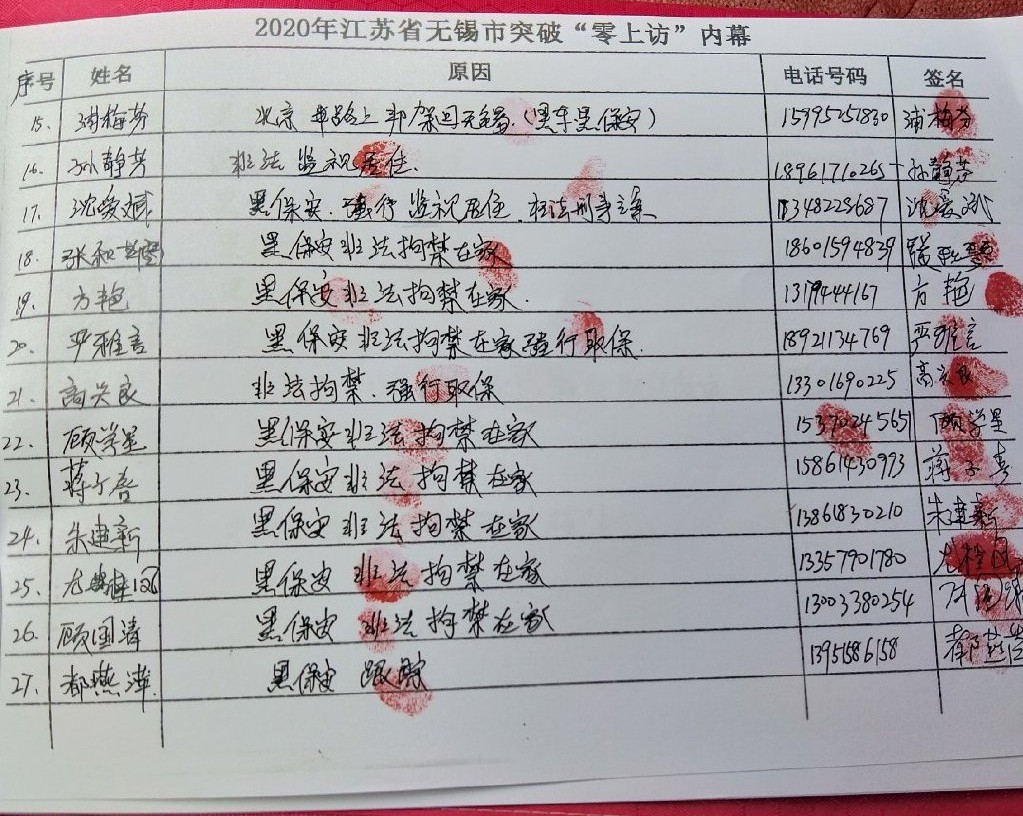 2020年江苏省无锡市突破“零上访”内幕
序号 姓名 原因 电话号码 签名
15. 浦梅芬 北京 马路上 绑架回无锡.(黑车黑保安) 15995251830 浦梅芬
16. 孙静芳 非法 监视居住. 18961710265 孙静芳
17. 沈爱斌 黑保安.强行 监视居住.枉法刑事立案 沈爱斌
18. 张和英 黑保安非法拘禁在家 18601594839
19. 方艳 黑保安非法拘禁在家. 方艳
20. 严雅言 黑保安非法拘禁在家强行取保. 18921134769 严雅言
21. 高兴良 非法拘禁.强行取保 13301690225 高兴良
22. 顾学星 黑保安非法拘禁在家 15370245651 顾学星
23. 蒋子 黑保安非法拘禁在家 15861430993 蒋子
24. 朱建新 黑保安非法拘禁在家 13861830210 朱建新
25. 尤桂 黑保安 非法拘禁在家 13357901780 尤桂
26. 顾国清 黑保安 非法拘禁在家 13003380254
27. 都燕萍 黑保安 跟踪 13951586158